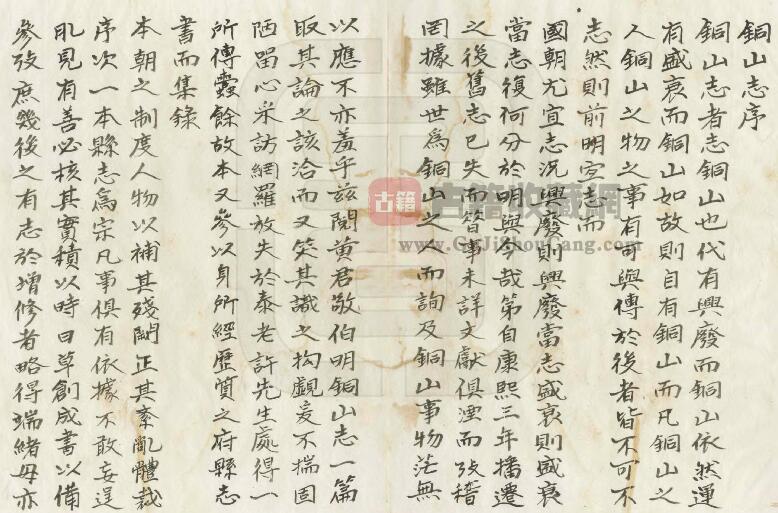 銅山志序
銅山志者志銅山也代有興廢而銅山依然運
有盛衰而銅山如故則自有銅山而凡銅山之
人銅山之物之事有可與傳於後者皆不可不
志然則前明宜志而
國朝尤宜志況興廢則興廢當志盛衰則盛衰
當志復何分於明與今哉第自康熙三年播遷
之後舊志已失而簪事未詳文獻俱湮而攷稽
罔據雖世為銅山之人而詢及銅山事物茫無
以應不亦羞乎茲閱黃君敬伯明銅山志一篇
取其論之該洽而又笑其識之拘覼爰不揣固
陋畱心采訪網羅放失於泰老許先生處得一
所傳蠹餘故本又參以身所經歷質之府縣志
書而集錄
本朝之制度人物以補其殘闕正其紊亂體裁
序次一本縣志為宗凡事俱有依據不敢妄逞
肌見有善必核其實積以時日草創成書以備
參攷庶幾後之有志於增修者略得端緒毋亦
古籍
古籍收藏網
www.GuJiShouCang.com